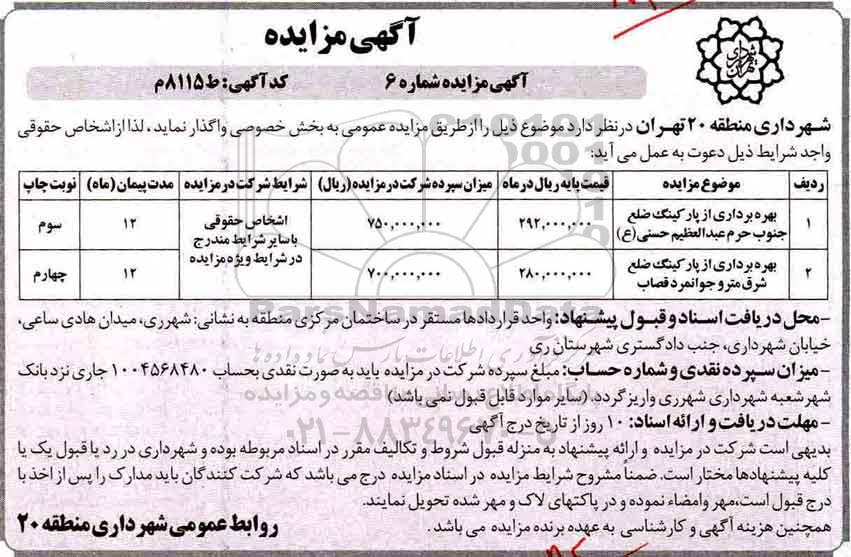 آگهی مزایده
آگهی مزایده شماره ۶ کد آگهی: ط۸۱۱۵م
شهرداری تهران
شهرداری منطقه ۲۰ تهران در نظر دارد موضوع ذیل را از طریق مزایده عمومی به بخش خصوصی واگذار نماید، لذا از اشخاص حقوقی
واجد شرایط ذیل دعوت به عمل می آید:
ردیف موضوع مزایده قیمت پایه ریال در ماه میزان سپرده شرکت در مزایده (ریال) شرایط شرکت در مزایده مدت پیمان (ماه) نوبت چاپ
۱ بهره برداری از پارکینگ ضلع جنوب حرم عبدالعظیم حسنی(ع) ۲۹۲,۰۰۰,۰۰۰ ۷۵۰,۰۰۰,۰۰۰ اشخاص حقوقی با سایر شرایط مندرج در شرایط ویژه مزایده ۱۲ سوم
۲ بهره برداری از پارکینگ ضلع شرق مترو جوانمرد قصاب ۲۸۰,۰۰۰,۰۰۰ ۷۰۰,۰۰۰,۰۰۰ ۱۲ چهارم
-محل دریافت اسناد و قبول پیشنهاد: واحد قراردادها مستقر در ساختمان مرکزی منطقه به نشانی: شهرری، میدان هادی ساعی،
خیابان شهرداری، جنب دادگستری شهرستان ری
-میزان سپرده نقدی و شماره حساب: مبلغ سپرده شرکت در مزایده باید به صورت نقدی بحساب ۱۰۰۴۵۶۸۴۸۰ جاری نزد بانک
شهر شعبه شهرداری شهرری واریز گردد. (سایر موارد قابل قبول نمی باشد)
-مهلت دریافت و ارائه اسناد: ۱۰ روز از تاریخ درج آگهی
بدیهی است شرکت در مزایده و ارائه پیشنهاد به منزله قبول شروط و تکالیف مقرر در اسناد مربوطه بوده و شهرداری در رد یا قبول یک یا
کلیه پیشنهادها مختار است. ضمناً مشروح شرایط مزایده در اسناد مزایده درج می باشد که شرکت کنندگان باید مدارک را پس از اخذ با
درج قبول است، مهر و امضاء نموده و در پاکتهای لاک و مهر شده تحویل نمایند.
همچنین هزینه آگهی و کارشناسی به عهده برنده مزایده می باشد.
روابط عمومی شهرداری منطقه ۲۰
ParsNamadData